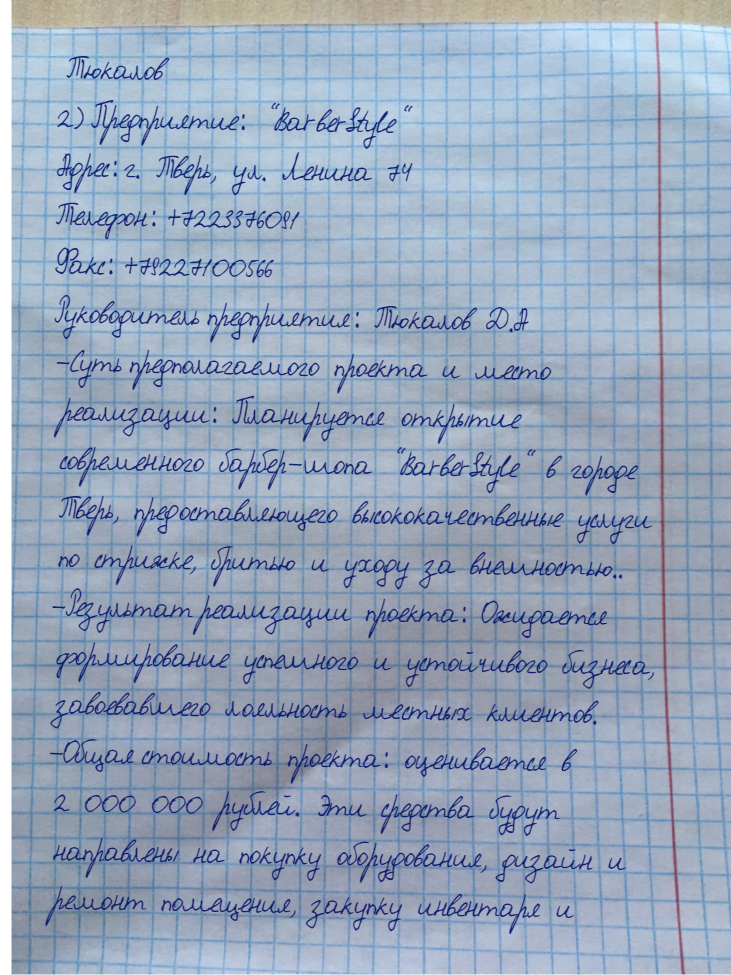 Тюкалов
2) Предприятие: "BarberStyle"
Адрес: г. Тверь, ул. Ленина 74
Телефон: +7223376091
Факс: +79227100566
Руководитель предприятия: Тюкалов Д.А
-Суть предполагаемого проекта и место
реализации: Планируется открытие
современного барбер-шопа "BarberStyle" в городе
Тверь, предоставляющего высококачественные услуги
по стрижке, бритью и уходу за внешностью..
-Результат реализации проекта: Ожидается
формирование успешного и устойчивого бизнеса,
завоевавшего лояльность местных клиентов.
-Общая стоимость проекта: оценивается в
2 000 000 рублей. Эти средства будут
направлены на покупку оборудования, дизайн и
ремонт помещения, закупку инвентаря и